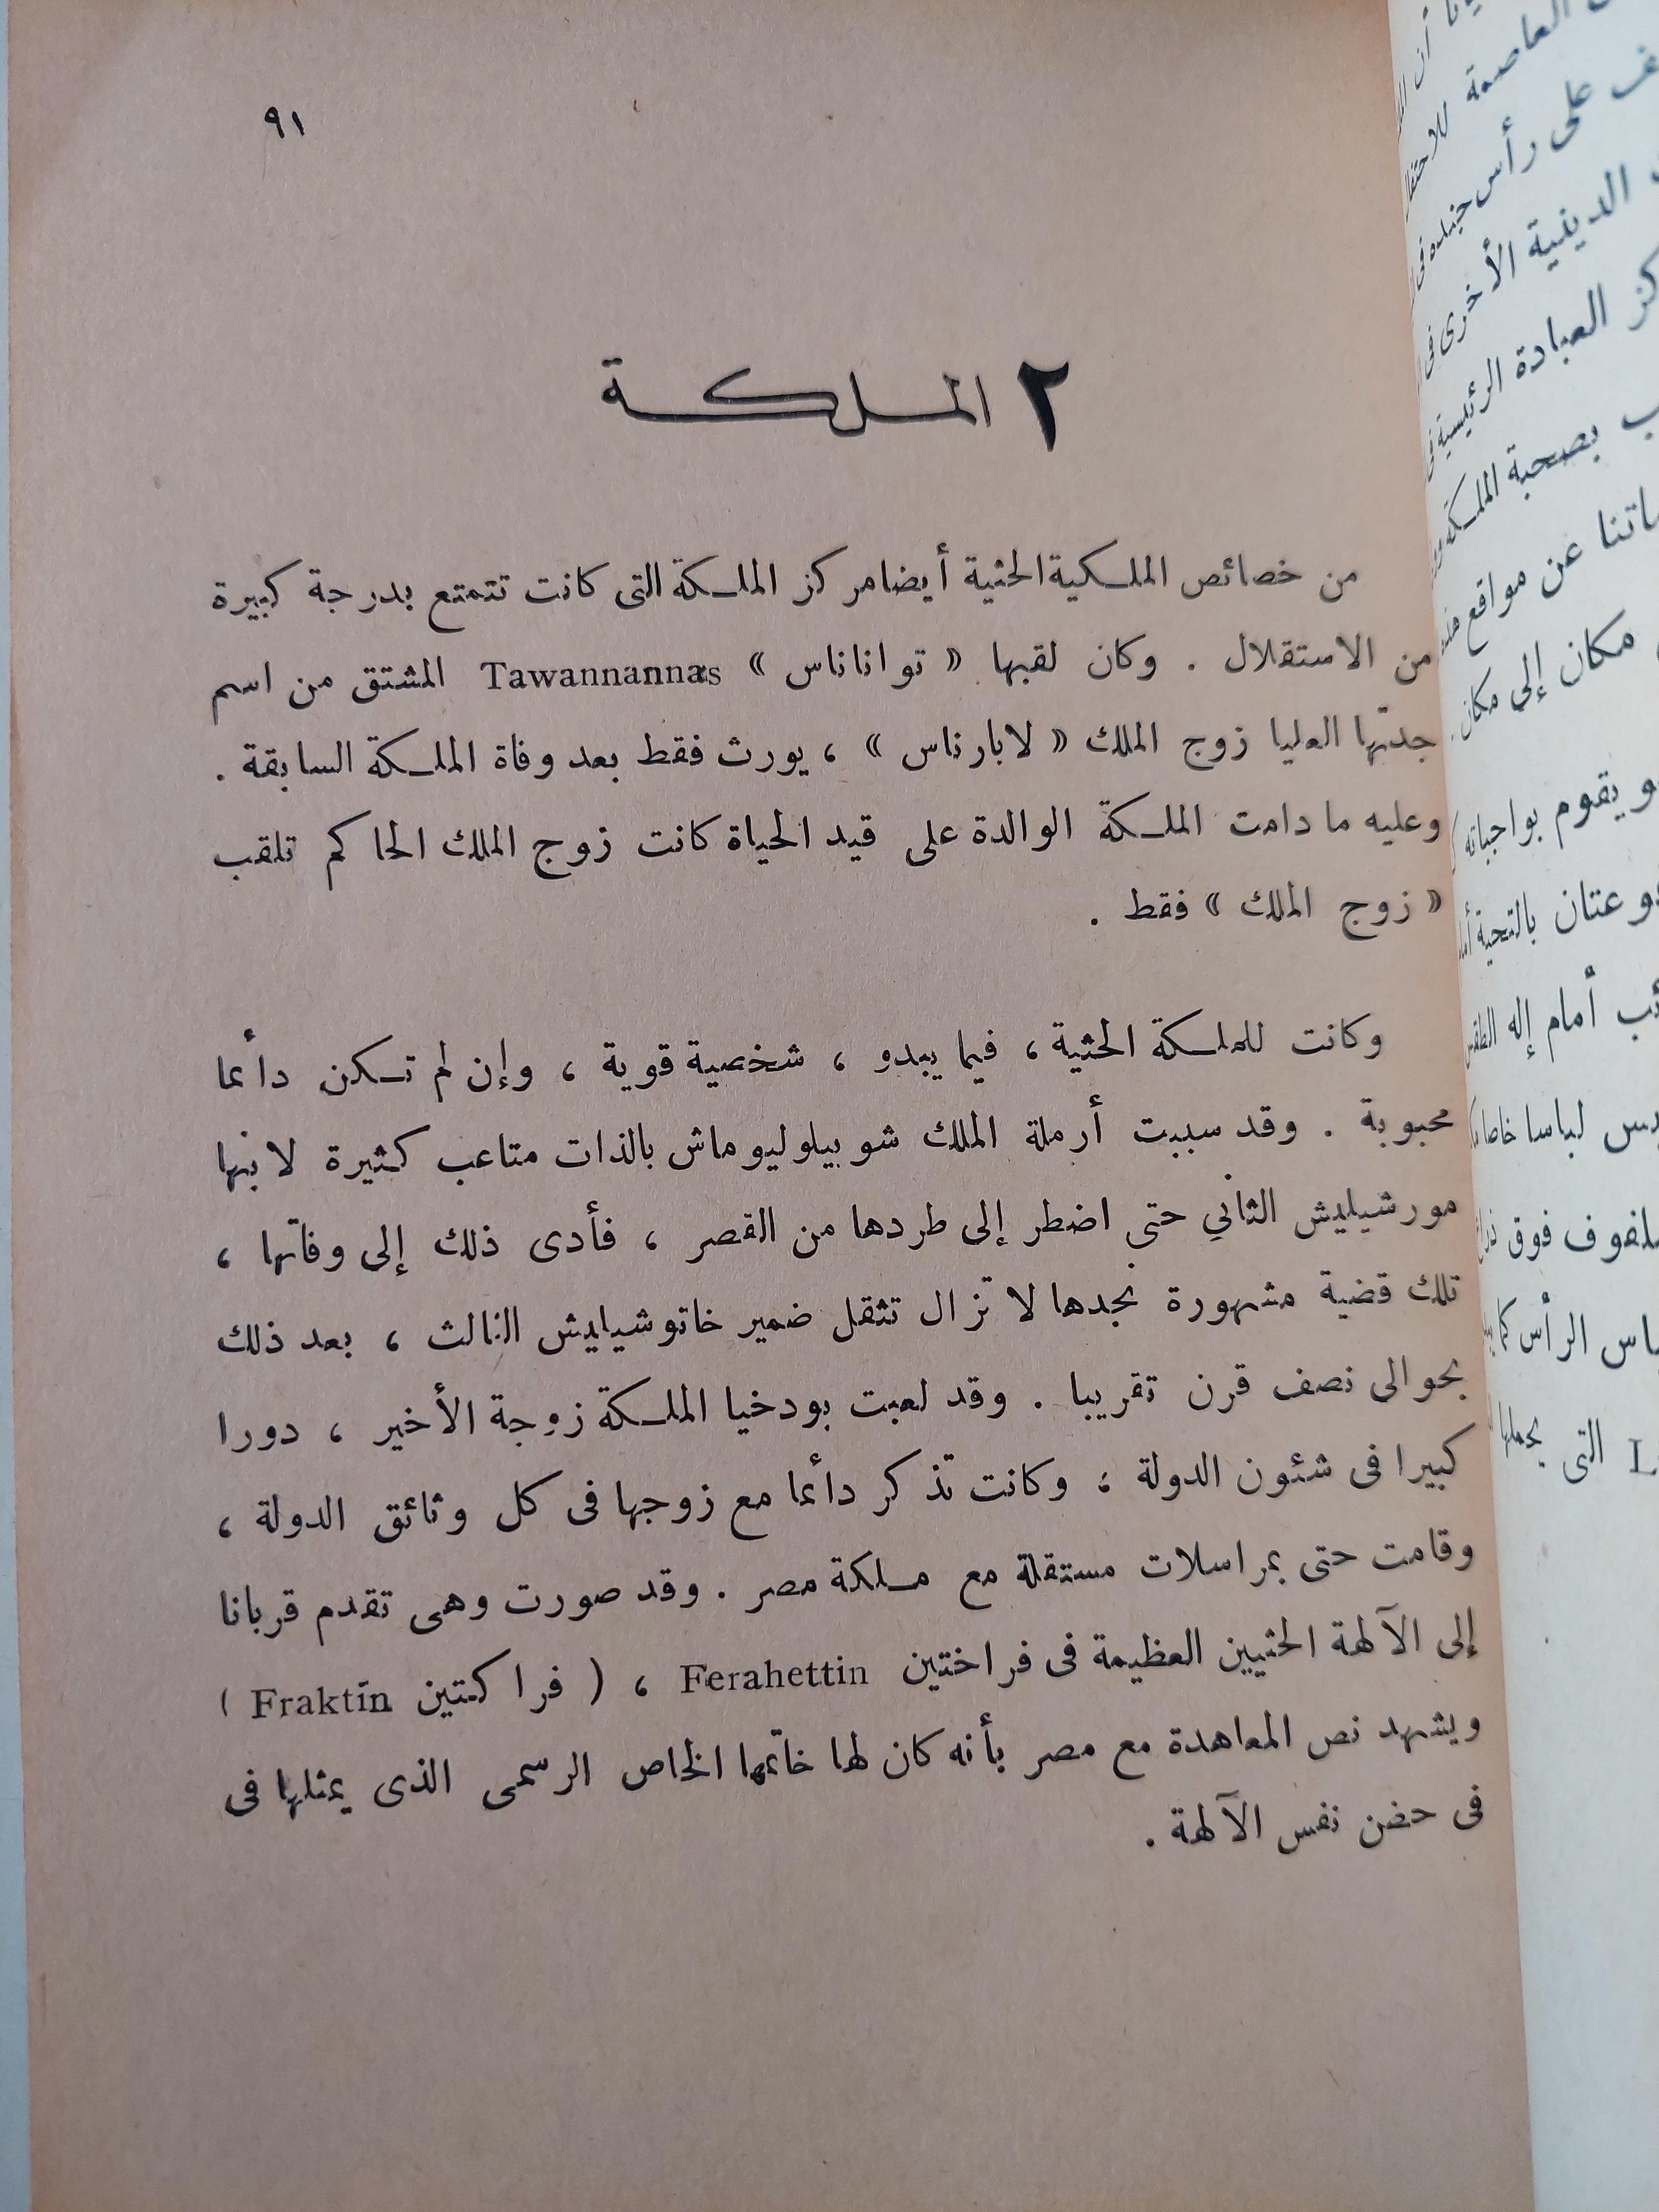 ٩١
٢ الملكة
من خصائص الملكية الحثية أيضا مركز الملكة التى كانت تتمتع بدرجة كبيرة
من الاستقلال . وكان لقبها « تواناناس » Tawannannas المشتق من اسم
جدتها العليا زوج الملك « لابارناس » ، يورث فقط بعد وفاة الملكة السابقة .
وعليه ما دامت الملكة الوالدة على قيد الحياة كانت زوج الملك الحاكم تلقب
« زوج الملك » فقط .
وكانت للملكة الحثية ، فيما يبدو ، شخصية قوية ، وإن لم تكن دائما
محبوبة . وقد سببت أرملة الملك شوبيلوليوماش بالذات متاعب كثيرة لابنها
مورشيليش الثاني حتى اضطر إلى طردها من القصر ، فأدى ذلك إلى وفاتها ،
تلك قضية مشهورة نجدها لا تزال تثقل ضمير خاتوشيليش الثالث ، بعد ذلك
بحوالى نصف قرن تقريبا . وقد لعبت بودخيا الملكة زوجة الأخير ، دورا
كبيرا فى شئون الدولة ، وكانت تذكر دائما مع زوجها فى كل وثائق الدولة ،
وقامت حتى بمراسلات مستقلة مع ملكة مصر . وقد صورت وهى تقدم قربانا
إلى الآلهة الحثيين العظيمة فى فراختين Ferahettin ، ( فراكتين Fraktin )
ويشهد نص المعاهدة مع مصر بأنه كان لها خاتمها الخاص الرسمى الذى يمثلها فى
فى حضن نفس الآلهة .
العاصمة للاحتفال
على رأس جنده فى
الدينية الأخرى فى
العبادة الرئيسية فى
بصحبة الملكة
عن مواقع
مكان إلى مكان .
يقوم بواجباته
بالتحية
أمام إله الطقس
لباسا خاصا
فوق
الرأس كما
التى يحملها